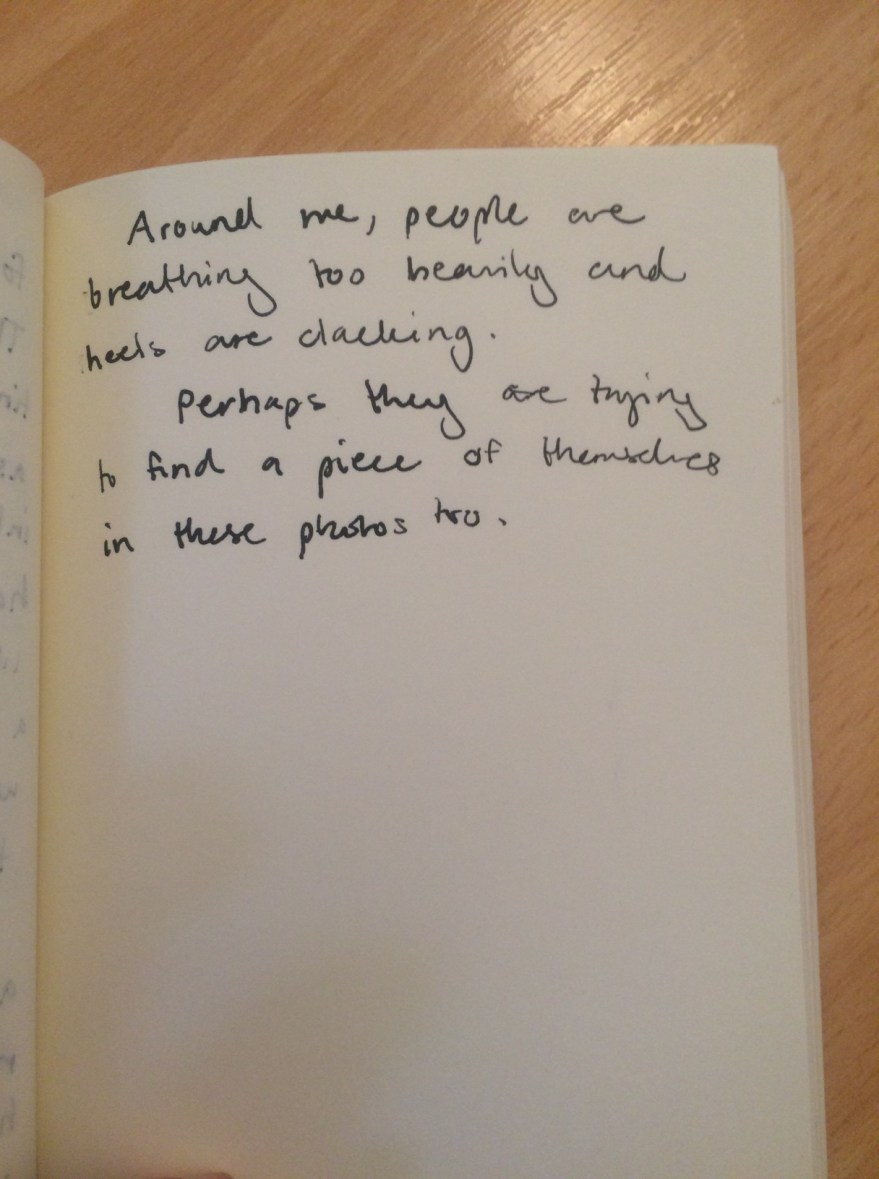 Around me, people are
breathing too heavily and
heels are clacking.
Perhaps they are trying
to find a piece of themselves
in these photos too.